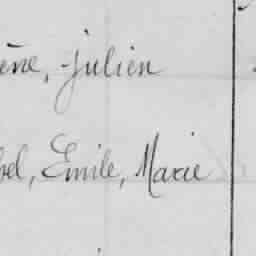 ène, Julien
el, Emile, Marie